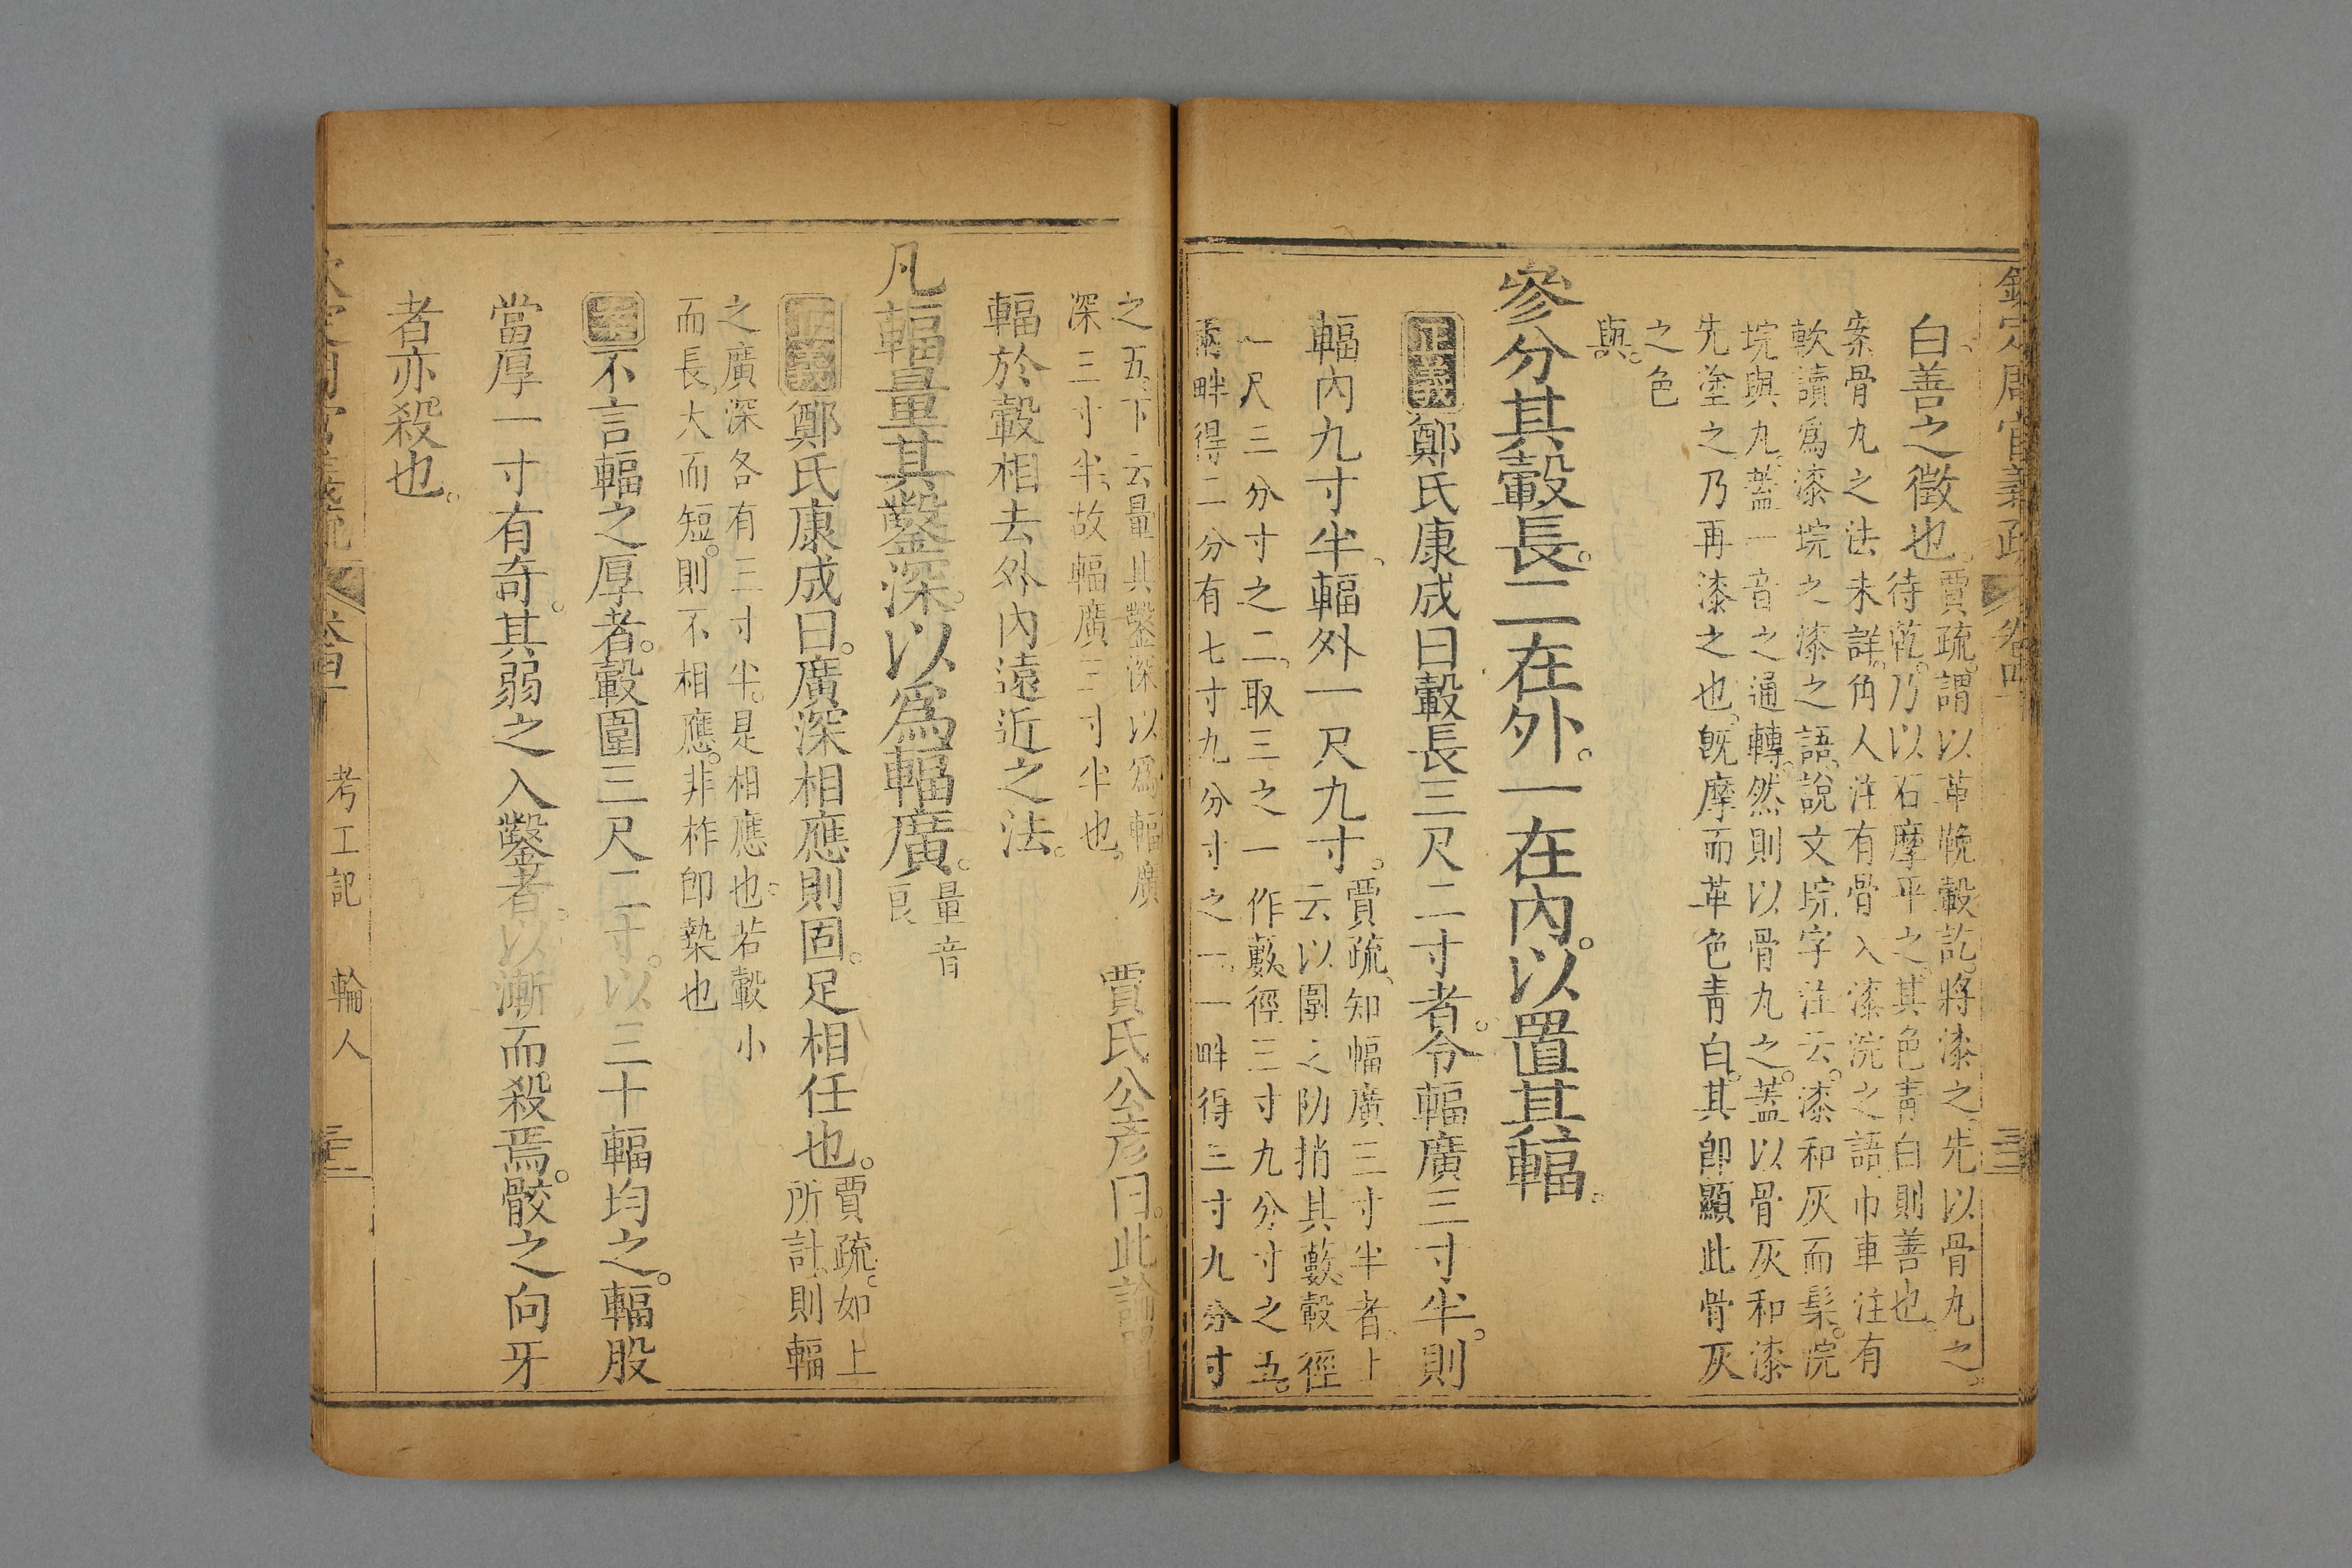 欽定周官義疏 卷四
白善之徵也。
賈疏。謂以革鞔轂訖。將漆之。先以骨丸之。
待乾。乃以石摩平之。其色青白則善也。
案骨丸之法未詳。角人注有骨入漆浣之語。巾車注有
軟讀爲漆垸之漆之語。說文垸字注云。漆和灰而髹。浣
垸與丸。蓋一音之通轉。然則以骨丸之。蓋以骨灰和漆
先塗之。乃再漆之也。旣摩而革色青白。其卽顯此骨灰
之色
與。
參分其轂長。二在外。一在內。以置其輻。
正義鄭氏康成曰轂長三尺二寸者。令輻廣三寸半。則
輻內九寸半、輻外一尺九寸。
賈疏、知幅廣三寸半者。上
云以圍之阞捎其藪。轂徑
一尺三分寸之二。取三之一作藪。徑三寸九分寸之五。
兩畔得二分有七寸九分寸之一。一畔得三寸九分寸
之五。下云量其鑿深以爲輻廣
深三寸半、故輻廣三寸半也。
賈氏公彥曰。此論
輻於轂相去外內遠近之法。
凡輻量其鑿深。以爲輻廣。
量音
良
正義鄭氏康成曰。廣深相應則固。足相任也。
賈疏。如上
所計則輻
之廣深各有三寸半。是相應也。若轂小
而長、大而短。則不相應。非柞卽槷也
案不言輻之厚者。轂圍三尺二寸。以三十輻均之。輻股
當厚一寸有奇。其弱之入鑿者。以漸而殺焉。骹之向牙
者亦殺也。
考工記 輪人